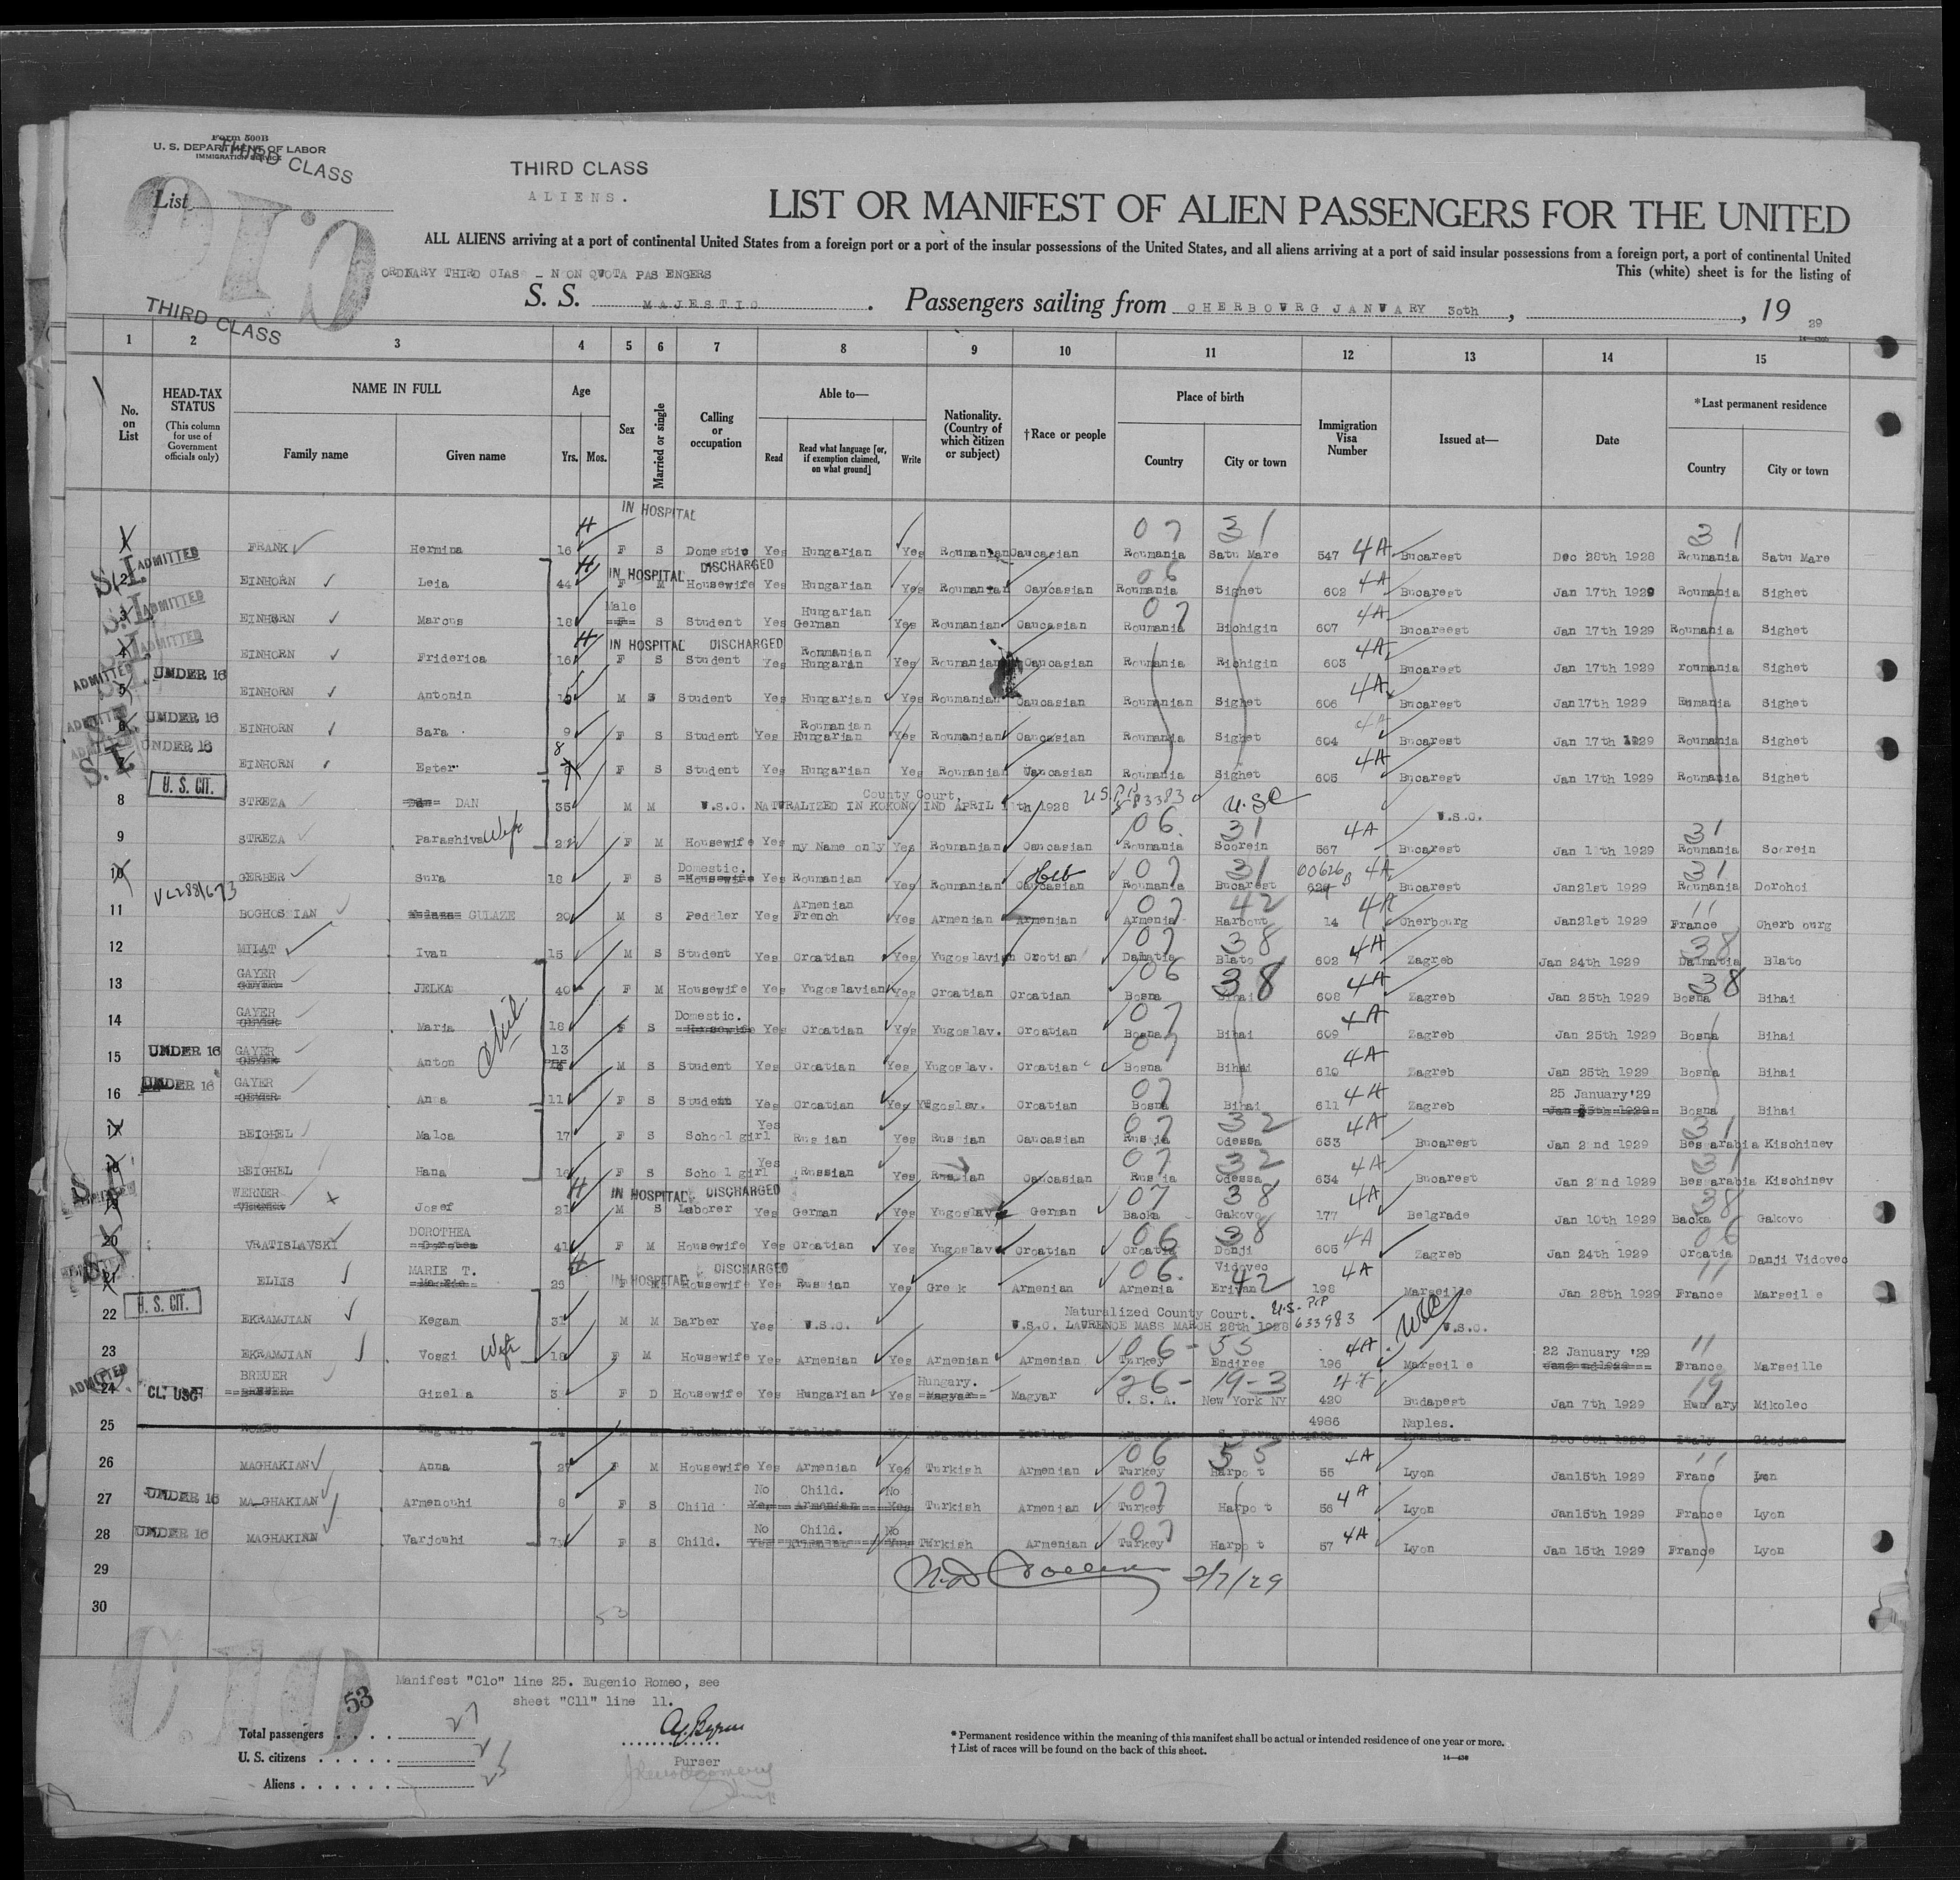 Form 500B
U. S. DEPARTMENT OF LABOR
IMMIGRATION SERVICE
THIRD CLASS
THIRD CLASS
ALIENS.
List
LIST OR MANIFEST OF ALIEN PASSENGERS FOR THE UNITED
ALL ALIENS arriving at a port of continental United States from a foreign port or a port of the insular possessions of the United States, and all aliens arriving at a port of said insular possessions from a foreign port, a port of continental United
This (white) sheet is for the listing of
ORDNARY THIRD CLAS - NON QUOTA PAS ENGERS
S. S. MAJESTIC . Passengers sailing from CHERBOURG JANUARY 30th , , 19 29
THIRD CLASS
1 2 3 4 5 6 7 8 9 10 11 12 13 14 15
No. on List
HEAD-TAX STATUS
(This column for use of Government officials only)
NAME IN FULL
Family name Given name
Age
Yrs. Mos.
Sex
Married or single
Calling or occupation
Able to—
Read Read what language [or, if exemption claimed, on what ground] Write
Nationality. (Country of which citizen or subject)
†Race or people
Place of birth
Country City or town
Immigration Visa Number
Issued at—
Date
*Last permanent residence
Country City or town
IN HOSPITAL
07 31 31
FRANK Hermina 16 F S Domestic Yes Hungarian Yes Roumanian Caucasian Roumania Satu Mare 547 4A Bucarest Dec 28th 1928 Roumania Satu Mare
S.I. ADMITTED
H IN HOSPITAL DISCHARGED
2 EINHORN Leia 44 F M Housewife Yes Hungarian Yes Roumanian Caucasian Roumania Sighet 602 4A Bucarest Jan 17th 1929 Roumania Sighet
S.I. ADMITTED
Male Hungarian 07
3 EINHORN Marcus 18 F S Student Yes German Yes Roumanian Caucasian Roumania Bichigin 607 4A Bucareest Jan 17th 1929 Roumania Sighet
ADMITTED
H IN HOSPITAL DISCHARGED Roumanian
4 EINHORN Friderica 16 F S Student Yes Hungarin Yes Roumanian Caucasian Roumania Richigin 603 4A Bucarest Jan 17th 1929 roumania Sighet
ADMITTED UNDER 16
5 EINHORN Antonin M S Student Yes Hungarian Yes Roumanian Caucasian Roumanian Sighet 606 4A Bucarest Jan17th 1929 Rumania Sighet
ADMITTED UNDER 16 Roumanian
6 EINHORN Sara 9 F S Student Yes Hungarian Yes Roumanian Caucasian Roumania Sighet 604 4A Bucarest Jan 17th 1929 Roumania Sighet
S.I. UNDER 16
7 EINHORN Ester 8 F S Student Yes Hungarian Yes Roumanian Caucasian Roumania Sighet 605 4A Bucarest Jan 17th 1929 Roumania Sighet
U. S. CIT. County Court.
8 STREZA DAN 35 M M U.S.C. NATURALIZED IN KOKONO IND APRIL 11th 1928 U.S.P.P. 583383 U.S.C U.S.C.
06. 31 31
9 STREZA Parashiva Wife 22 F M Housewife Yes my Name only Yes Roumanian Caucasian Roumania Scorein 567 4A Bucarest Jan 1 th 1929 Roumania Scorein
Domestic. Heb 07 31 00626 31
10 GERBER Sura 18 F S Housewife Yes Roumanian Yes Roumanian Caucasian Roumania Bucarest 4A Bucarest Jan21st 1929 Roumania Dorohoi
Armenian 07 42 11
11 BOGHOSSIAN GULAZE 20 M S Peddler Yes French Yes Armenian Armenian Armenia Harbout 14 4A Cherbourg Jan21st 1929 France Cherb ourg
07 38 38
12 MILAT Ivan 15 M S Student Yes Croatian Yes Yugoslavian Crotian Dalmatia Blato 602 4A Zagreb Jan 24th 1929 Dalmatia Blato
GAYER 06 38 38
13 JELKA 40 F M Housewife Yes Yugoslavian Yes Croatian Croatian Bosna Bihai 608 4A Zagreb Jan 25th 1929 Bosna Bihai
GAYER Domestic. 07
14 GEYER Maria 18 F S Housewife Yes Croatian Yes Yugoslav. Croatian Bosna Bihai 609 4A Zagreb Jan 25th 1929 Bosna Bihai
UNDER 16 GAYER 13 07
15 GEYER Anton M S Student Yes Croatian Yes Yugoslav. Croatian Bosna Bihai 610 4A Zagreb Jan 25th 1929 Bosna Bihai
UNDER 16 GAYER 07 25 January '29
16 GEYER Anna 11 F S Student Yes Croatian Yes Yugoslav. Croatian Bosna Bihai 611 4A Zagreb Jan 25th 1929 Bosna Bihai
Yes 07 32 31
17 BEIGHEL Malca 17 F S School girl Russian Yes Russian Caucasian Russia Odessa 633 4A Bucarest Jan 2 nd 1929 Bessarabia Kischinev
Yes 07 32 31
18 BEIGHEL Hana 16 F S School girl Russian Yes Russian Caucasian Russia Odessa 634 4A Bucarest Jan 2 nd 1929 Bessarabia Kischinev
S.I. WERNER H IN HOSPITAL DISCHARGED 07 38 38
19 Josef 21 M S Laborer Yes German Yes Yugoslav German Backa Gakovo 177 4A Belgrade Jan 10th 1929 Backa Gakovo
DOROTHEA 06 38 06
20 VRATISLAVSKY Dorotea 41 F M Housewife Yes Croatian Yes Yugoslav Croatian Croatia Donji Vidovec 605 4A Zagreb Jan 24th 1929 Croatia Danji Vidovec
MARIE T. H IN HOSPITAL DISCHARGED 06. 42 11
21 ELLIS 25 F M Housewife Yes Russian Yes Gre k Armenian Armenia Erivan 198 4A Marseille Jan 28th 1929 France Marseille
U. S. CIT. Naturalized County Court. U.S. P.P
22 EKRAMJIAN Kegam 31 M M Barber Yes U.S.C. U.S.C. LAURENCE MASS MARCH 28th 1928 633983 USC U.S.C.
06 - 55 22 January '29 11
23 EKRAMJIAN Vosgi Wife 18 F M Housewife Yes Armenian Yes Armenian Armenian Turkey Endires 196 4A Marseille France Marseille
ADMITTED BREUER Hungary. 26 - 19-3 19
24 CL: USC Gizella 3 F D Housewife Yes Hungarian Yes Magyar Magyar U. S. A. New York NY 420 Budapest Jan 7th 1929 Hungary Mikolec
4986 Naples.
25 ROMEO Eugenio 24 M Blacksmith Yes Italian Yes Argentine Italian Argentine Dec 6th 1928 Italy
06 55 11
26 MAGHAKIAN Anna 2 F M Housewife Yes Armenian Yes Turkish Armenian Turkey Harpo t 55 4A Lyon Jan15th 1929 Franc Lyon
UNDER 16 No Child. No 07
27 MA GHAKIAN Armenouhi 8 F S Child Yes Armenian Yes Turkish Armenian Turkey Harpo t 56 4A Lyon Jan15th 1929 France Lyon
UNDER 16 No Child. No 07
28 MAGHAKIAN Varjouhi 7 F S Child. Yes Armenian Yes Turkish Armenian Turkey Harpo t 57 4A Lyon Jan 15th 1929 France Lyon
29 2/7/29
30
53
Manifest "Clo" line 25. Eugenio Romeo, see
sheet "Cll" line 11.
53
Total passengers 27
U. S. citizens 2
Aliens 25
Purser
* Permanent residence within the meaning of this manifest shall be actual or intended residence of one year or more.
† List of races will be found on the back of this sheet.
14—430